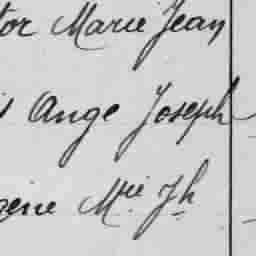 tor Marie Jean
Ange Joseph
gène Mie Jh